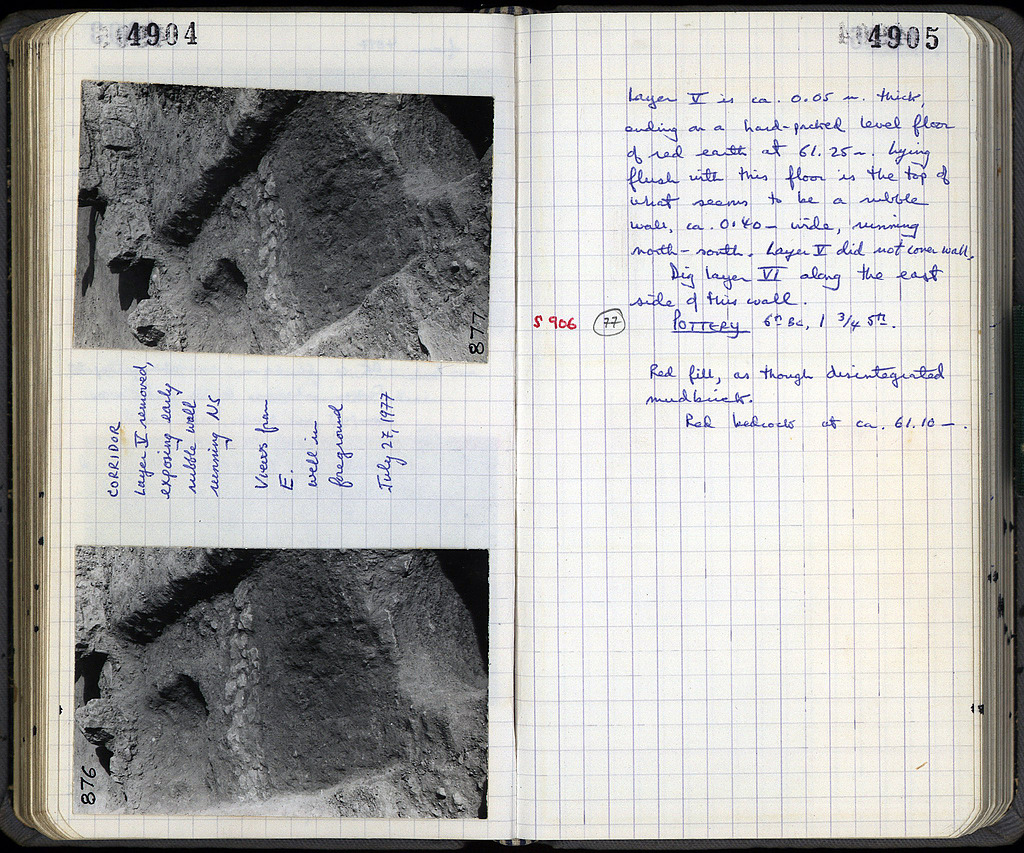 4904
877
CORRIDOR
Layer V removed,
exposing early
rubble wall
running NS
Views from
E.
well in
foreground
July 27, 1977
876
4905
Layer V is ca. 0.05 m. thick,
ending on a hard-packed level floor
of red earth at 61.25 m. Lying
flush with this floor is the top of
what seems to be a rubble
wall, ca. 0.40 m wide, running
north-south. Layer V did not cover wall.
Dig Layer VI along the east
side of this wall.
S 906 77 POTTERY 6th BC, 1 3/4 5th.
Red fill, as though disintegrated
mudbrick.
Red bedrock at ca. 61.10 m.